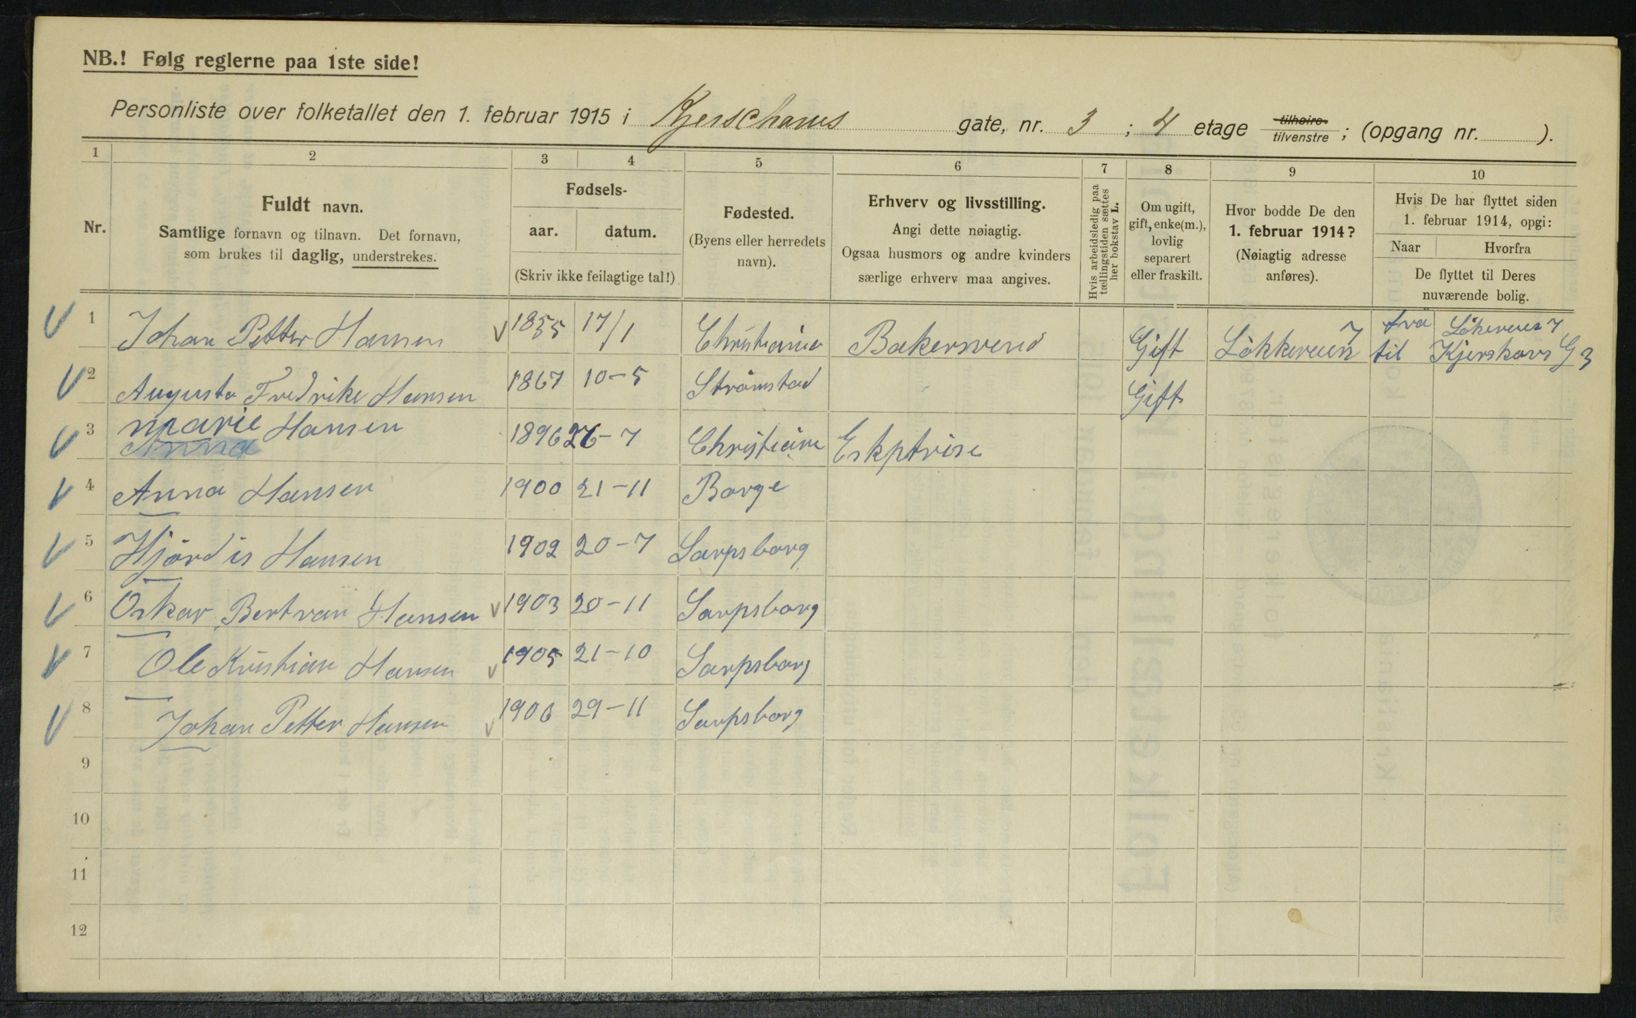 NB.! Følg reglerne paa 1ste side!
Personliste over folketallet den 1. februar 1915 i Kjerschows gate, nr. 3 ; 4 etage tilhøire. tilvenstre ; (opgang nr. ).
1 2 3 4 5 6 7 8 9 10
Nr.
Fuldt navn.
Samtlige fornavn og tilnavn. Det fornavn,
som brukes til daglig, understrekes.
Fødsels-
aar. datum.
(Skriv ikke feilagtige tal!)
Fødested.
(Byens eller herredets
navn).
Erhverv og livsstilling.
Angi dette nøiagtig.
Ogsaa husmors og andre kvinders
særlige erhverv maa angives.
Hvis arbeidsledig paa
tællingstiden sættes
her bokstav L.
Om ugift,
gift, enke(m.),
lovlig
separert
eller fraskilt.
Hvor bodde De den
1. februar 1914?
(Nøiagtig adresse
anføres).
Hvis De har flyttet siden
1. februar 1914, opgi:
Naar Hvorfra
De flyttet til Deres
nuværende bolig.
1 Johan Petter Hansen 1855 17/1 Christiania Bakersvend Gift Løkkeveien 7 fra Løkeveien 7
til Kjerskovs G 3
2 Augusta Fredrike Hansen 1867 10-5 Strømstad Gift
3 Marie Hansen 1896 26-7 Christiania
Anna
4 Anna Hansen 1900 21-11 Borge
5 Hjørdis Hansen 1902 20-7 Sarpsborg
6 Oskar Bertran Hansen 1903 20-11 Sarpsborg
7 Ole Kristian Hansen 1905 21-10 Sarpsborg
8 Johan Petter Hansen 1906 29-11 Sarpsborg
9
10
11
12